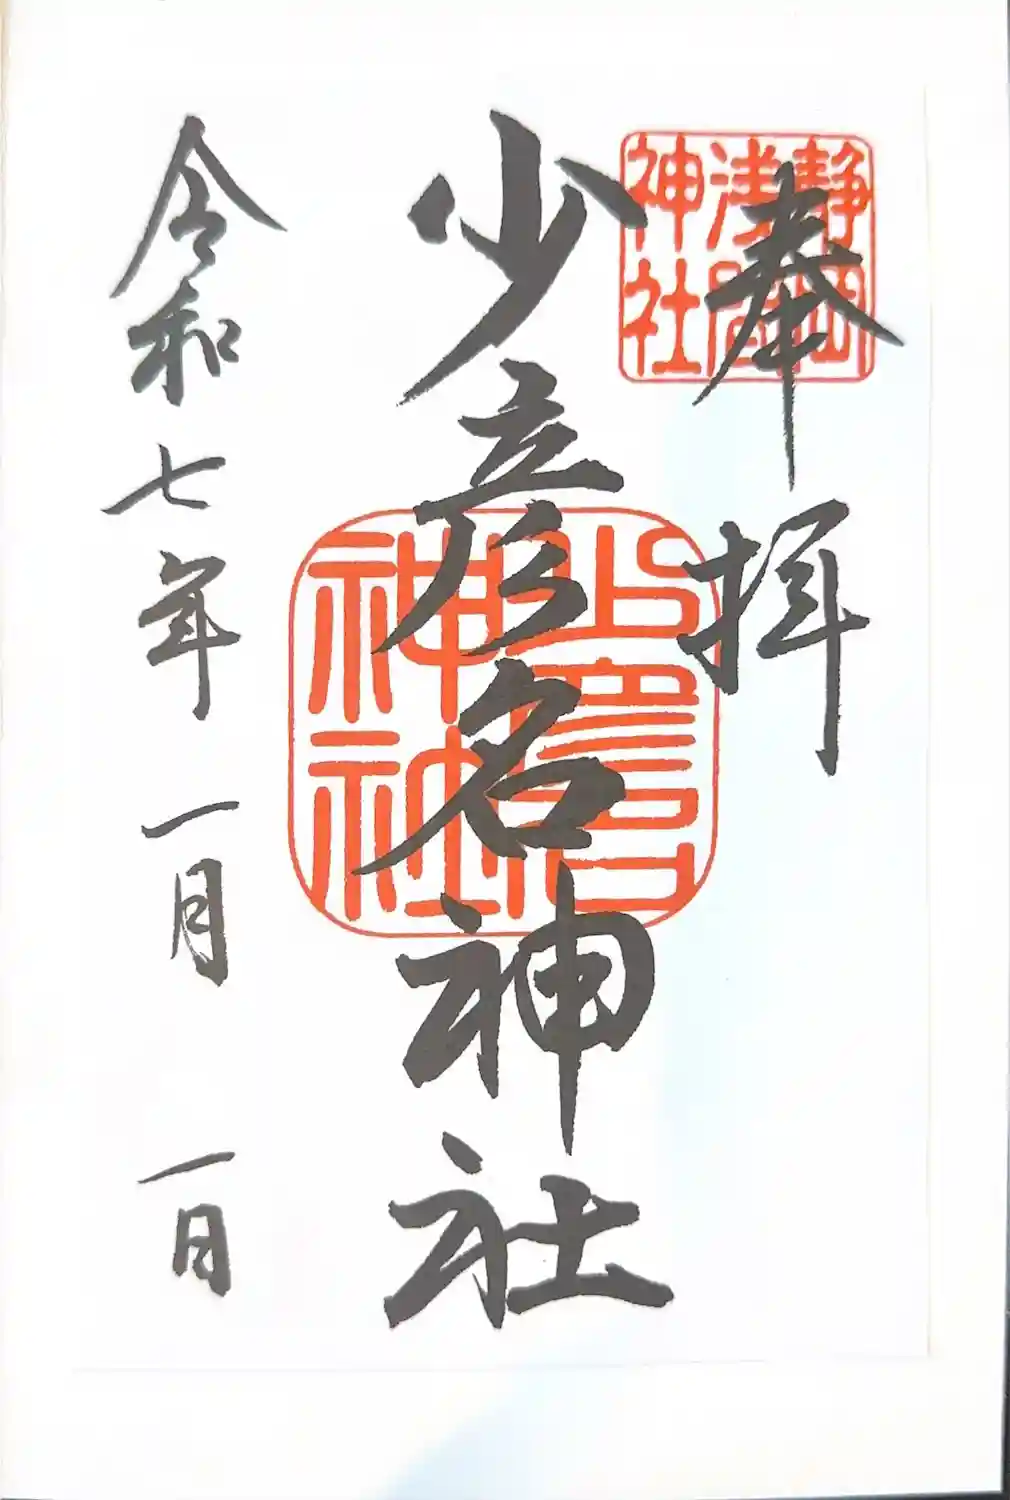 奉拝
静岡
浅間
神社
少彦名神社
少彦名
神社
令和七年 一月 一日